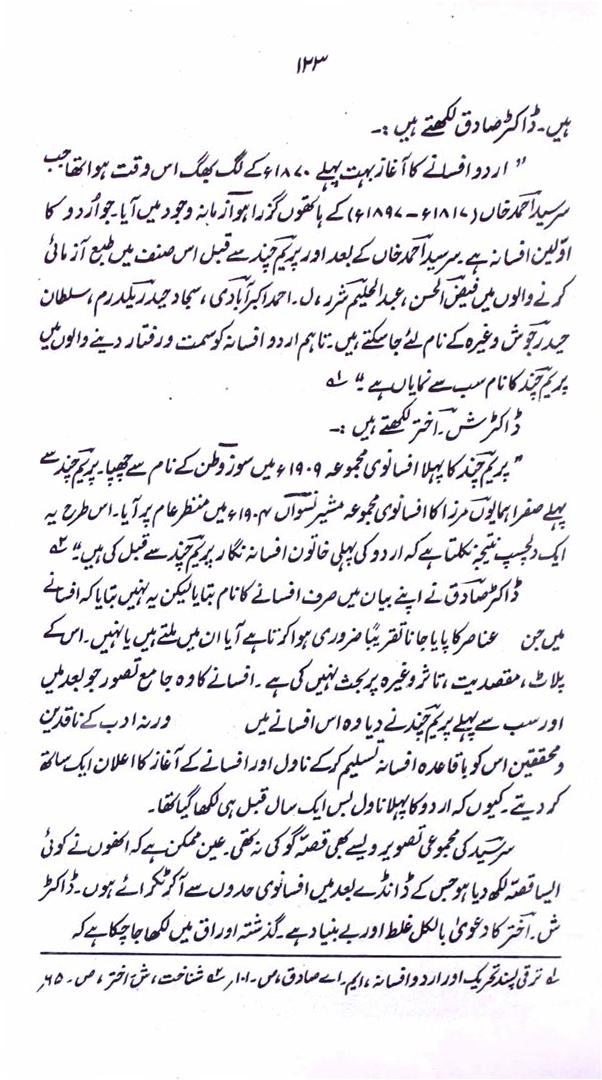 ۱۲۳
ہیں۔ ڈاکٹر صادق لکھتے ہیں :۔
" اردو افسانے کا آغاز بہت پہلے ۱۸۷۰ء کے لگ بھگ اس وقت ہوا تھا جب
سرسید احمد خاں (۱۸۱۷ء - ۱۸۹۷ء) کے ہاتھوں گزرا ہوا زمانہ وجود میں آیا۔ جو اُردو کا
اوّلین افسانہ ہے۔ سرسید احمد خاں کے بعد اور پریم چند سے قبل اس صنف میں طبع آزمائی
کرنے والوں میں فیض الحسن، عبدالحلیم شرر، ل۔ احمد اکبر آبادی، سجاد حیدر یلدرم، سلطان
حیدر جوش وغیرہ کے نام لئے جا سکتے ہیں۔ تاہم اردو افسانہ کو سمت و رفتار دینے والوں میں
پریم چند کا نام سب سے نمایاں ہے۔" ۱؎
ڈاکٹر ش۔ اختر لکھتے ہیں :۔
" پریم چند کا پہلا افسانوی مجموعہ ۱۹۰۹ء میں سوز وطن کے نام سے چھپا۔ پریم چند سے
پہلے صغرا ہمایوں مرزا کا افسانوی مجموعہ مشیر نسواں ۱۹۰۴ء میں منظر عام پر آیا۔ اس طرح یہ
ایک دلچسپ نتیجہ نکلتا ہے کہ اردو کی پہلی خاتون افسانہ نگار پریم چند سے قبل کی ہیں۔" ۲؎
ڈاکٹر صادق نے اپنے بیان میں صرف افسانے کا نام بتایا لیکن یہ نہیں بتایا کہ افسانے
میں جن عناصر کا پایا جانا تقریباً ضروری ہوا کرتا ہے آیا ان میں ملتے ہیں یا نہیں۔ اس کے
پلاٹ، مقصدیت، تاثر وغیرہ پر بحث نہیں کی ہے۔ افسانے کا وہ جامع تصور جو بعد میں
اور سب سے پہلے پریم چند نے دیا وہ اس افسانے میں ورنہ ادب کے ناقدین
و محققین اس کو باقاعدہ افسانہ تسلیم کر کے ناول اور افسانے کے آغاز کا اعلان ایک ساتھ
کر دیتے۔ کیوں کہ اردو کا پہلا ناول بس ایک سال قبل ہی لکھا گیا تھا۔
سرسید کی مجموعی تصویر ویسے بھی قصہ گو کی نہ تھی۔ عین ممکن ہے کہ انھوں نے کوئی
ایسا قصہ لکھ دیا ہو جس کے ڈانڈے بعد میں افسانوی حدوں سے آکر ٹکرائے ہوں۔ ڈاکٹر
ش۔ اختر کا دعویٰ بالکل غلط اور بے بنیاد ہے۔ گذشتہ اوراق میں لکھا جا چکا ہے کہ
۱؎ ترقی پسند تحریک اور اردو افسانہ، ایم۔ اے صادق، ص۔ ۱۰۱، ۲؎ شناخت، ش اختر، ص۔ ۶۵،